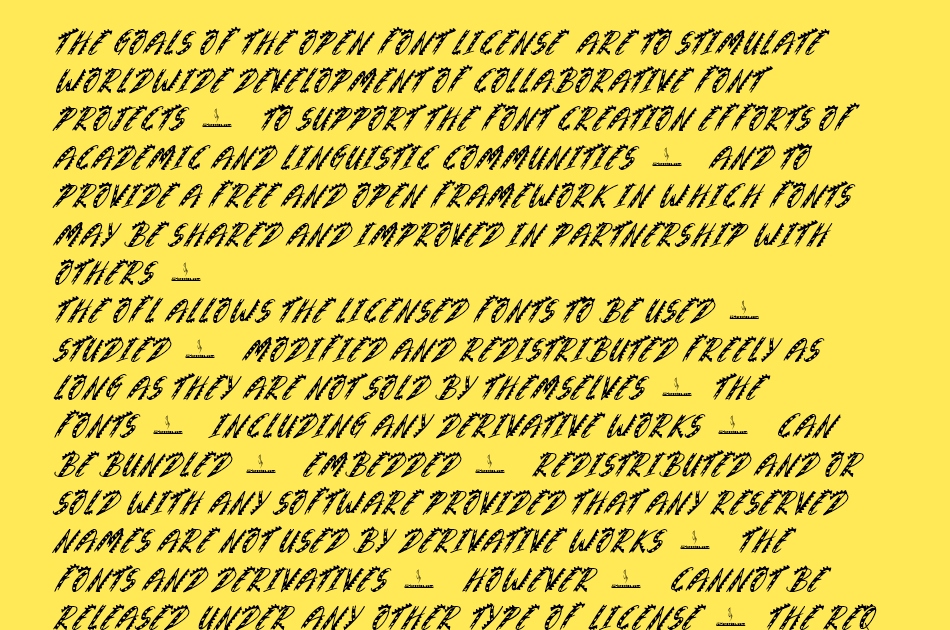 THE GOALS OF THE OPEN FONT LICENSE ARE TO STIMULATE
WORLDWIDE DEVELOPMENT OF COLLABORATIVE FONT
PROJECTS TO SUPPORT THE FONT CREATION EFFORTS OF
ACADEMIC AND LINGUISTIC COMMUNITIES AND TO
PROVIDE A FREE AND OPEN FRAMEWORK IN WHICH FONTS
MAY BE SHARED AND IMPROVED IN PARTNERSHIP WITH
OTHERS
THE OFL ALLOWS THE LICENSED FONTS TO BE USED
STUDIED MODIFIED AND REDISTRIBUTED FREELY AS
LONG AS THEY ARE NOT SOLD BY THEMSELVES THE
FONTS INCLUDING ANY DERIVATIVE WORKS CAN
BE BUNDLED EMBEDDED REDISTRIBUTED AND OR
SOLD WITH ANY SOFTWARE PROVIDED THAT ANY RESERVED
NAMES ARE NOT USED BY DERIVATIVE WORKS THE
FONTS AND DERIVATIVES HOWEVER CANNOT BE
RELEASED UNDER ANY OTHER TYPE OF LICENSE THE REQ